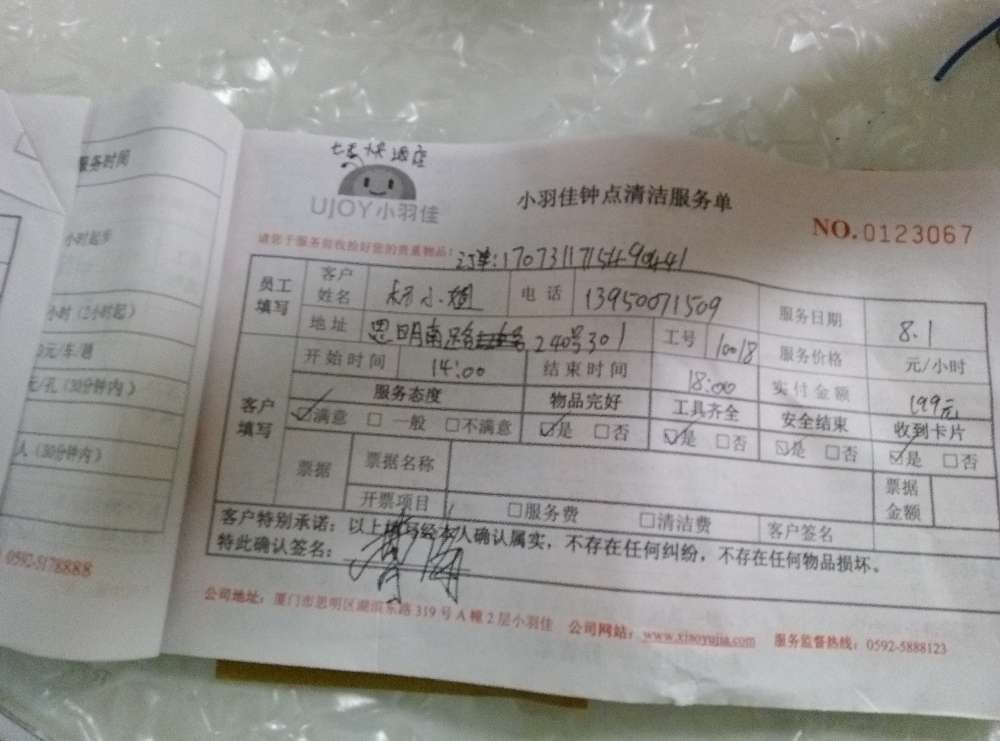 服务时间
小时起步
小时（2小时起）
元/孔（30分钟内）
人（30分钟内）
0592-5178888
UJOY小羽佳
小羽佳钟点清洁服务单
NO.0123067
请您于服务前收拾好您的贵重物品：
员工填写
客户姓名 小姐 电话 13950071509 服务日期 8.1
地址 思明南路 240号301 工号 10018 服务价格 元/小时
客户填写
开始时间 14:00 结束时间 18:00 实付金额 199元
服务态度 物品完好 工具齐全 安全结束 收到卡片
☑满意 □一般 □不满意 ☑是 □否 ☑是 □否 ☑是 □否 ☑是 □否
票据 票据名称 票据金额
开票项目 □服务费 □清洁费 客户签名
客户特别承诺：以上填写经本人确认属实，不存在任何纠纷，不存在任何物品损坏。
特此确认签名：
公司地址：厦门市思明区湖滨东路319号A幢2层小羽佳 公司网站：www.xiaoyujia.com 服务监督热线：0592-5888123